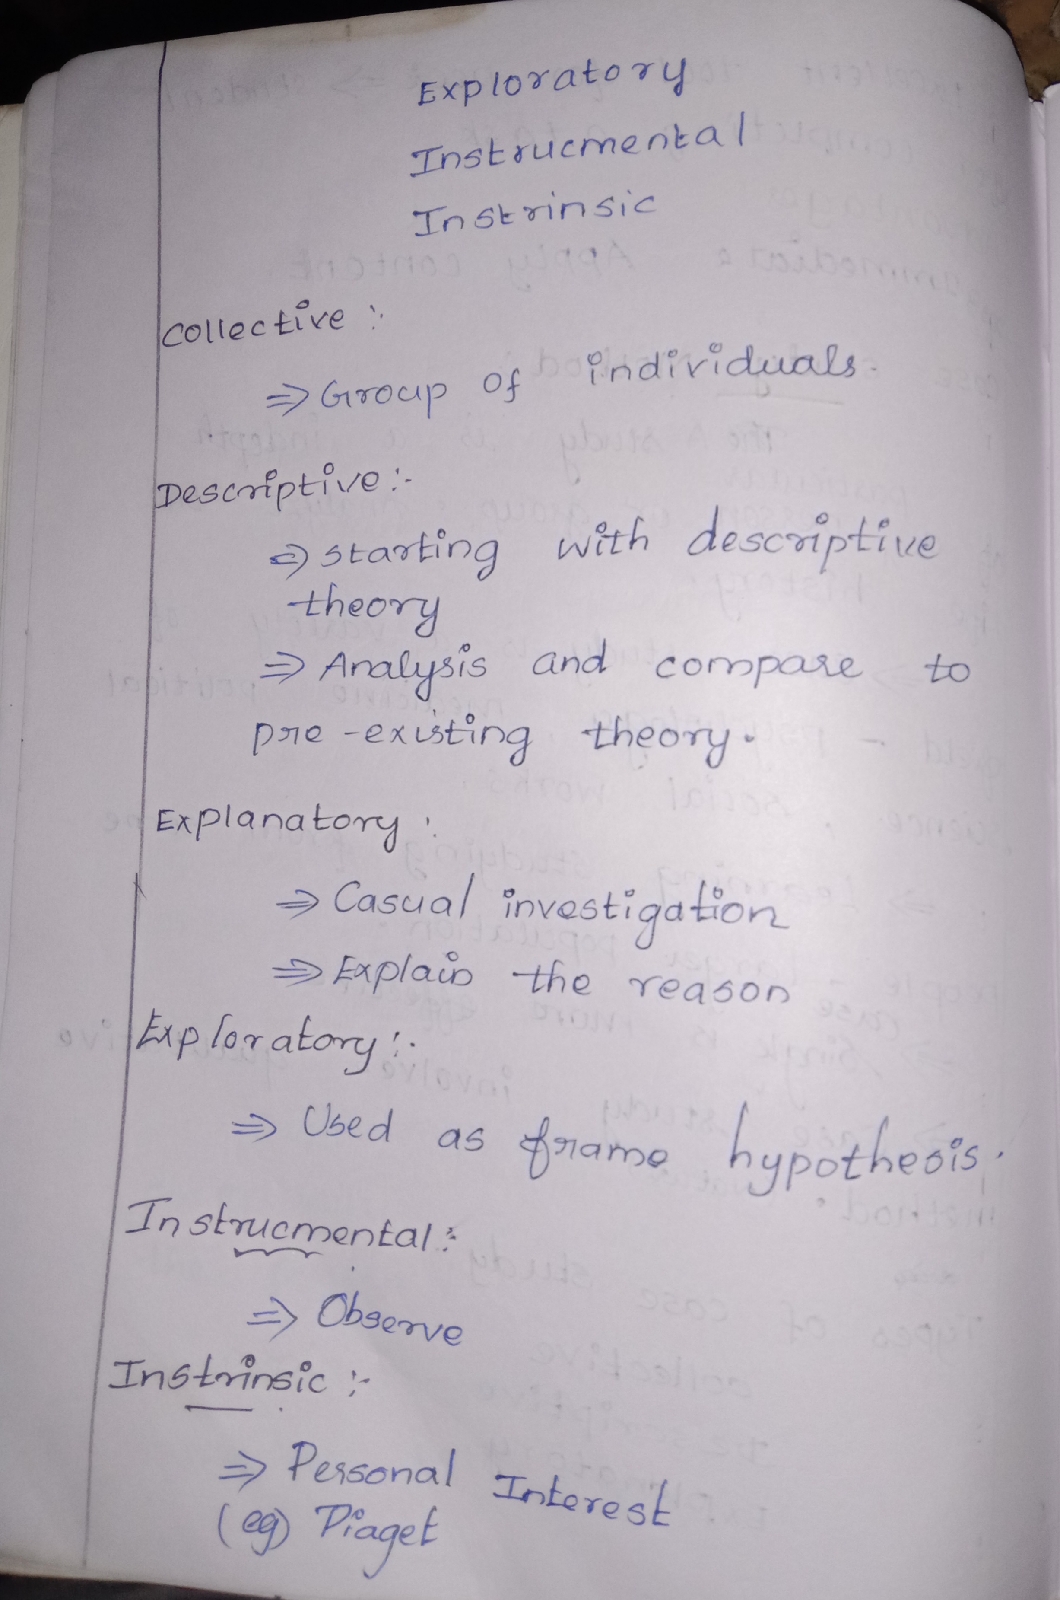 Exploratory
Instrucmental
Instrinsic
Collective :-
⇒ Group of individuals.
Descriptive :-
⇒ starting with descriptive
theory
⇒ Analysis and compare to
pre-existing theory.
Explanatory :
⇒ Casual investigation
⇒ Explain the reason
Exploratory :-
⇒ Used as frame hypothesis.
Instrucmental :-
⇒ Observe
Instrinsic :-
⇒ Personal Interest
(eg) Piaget